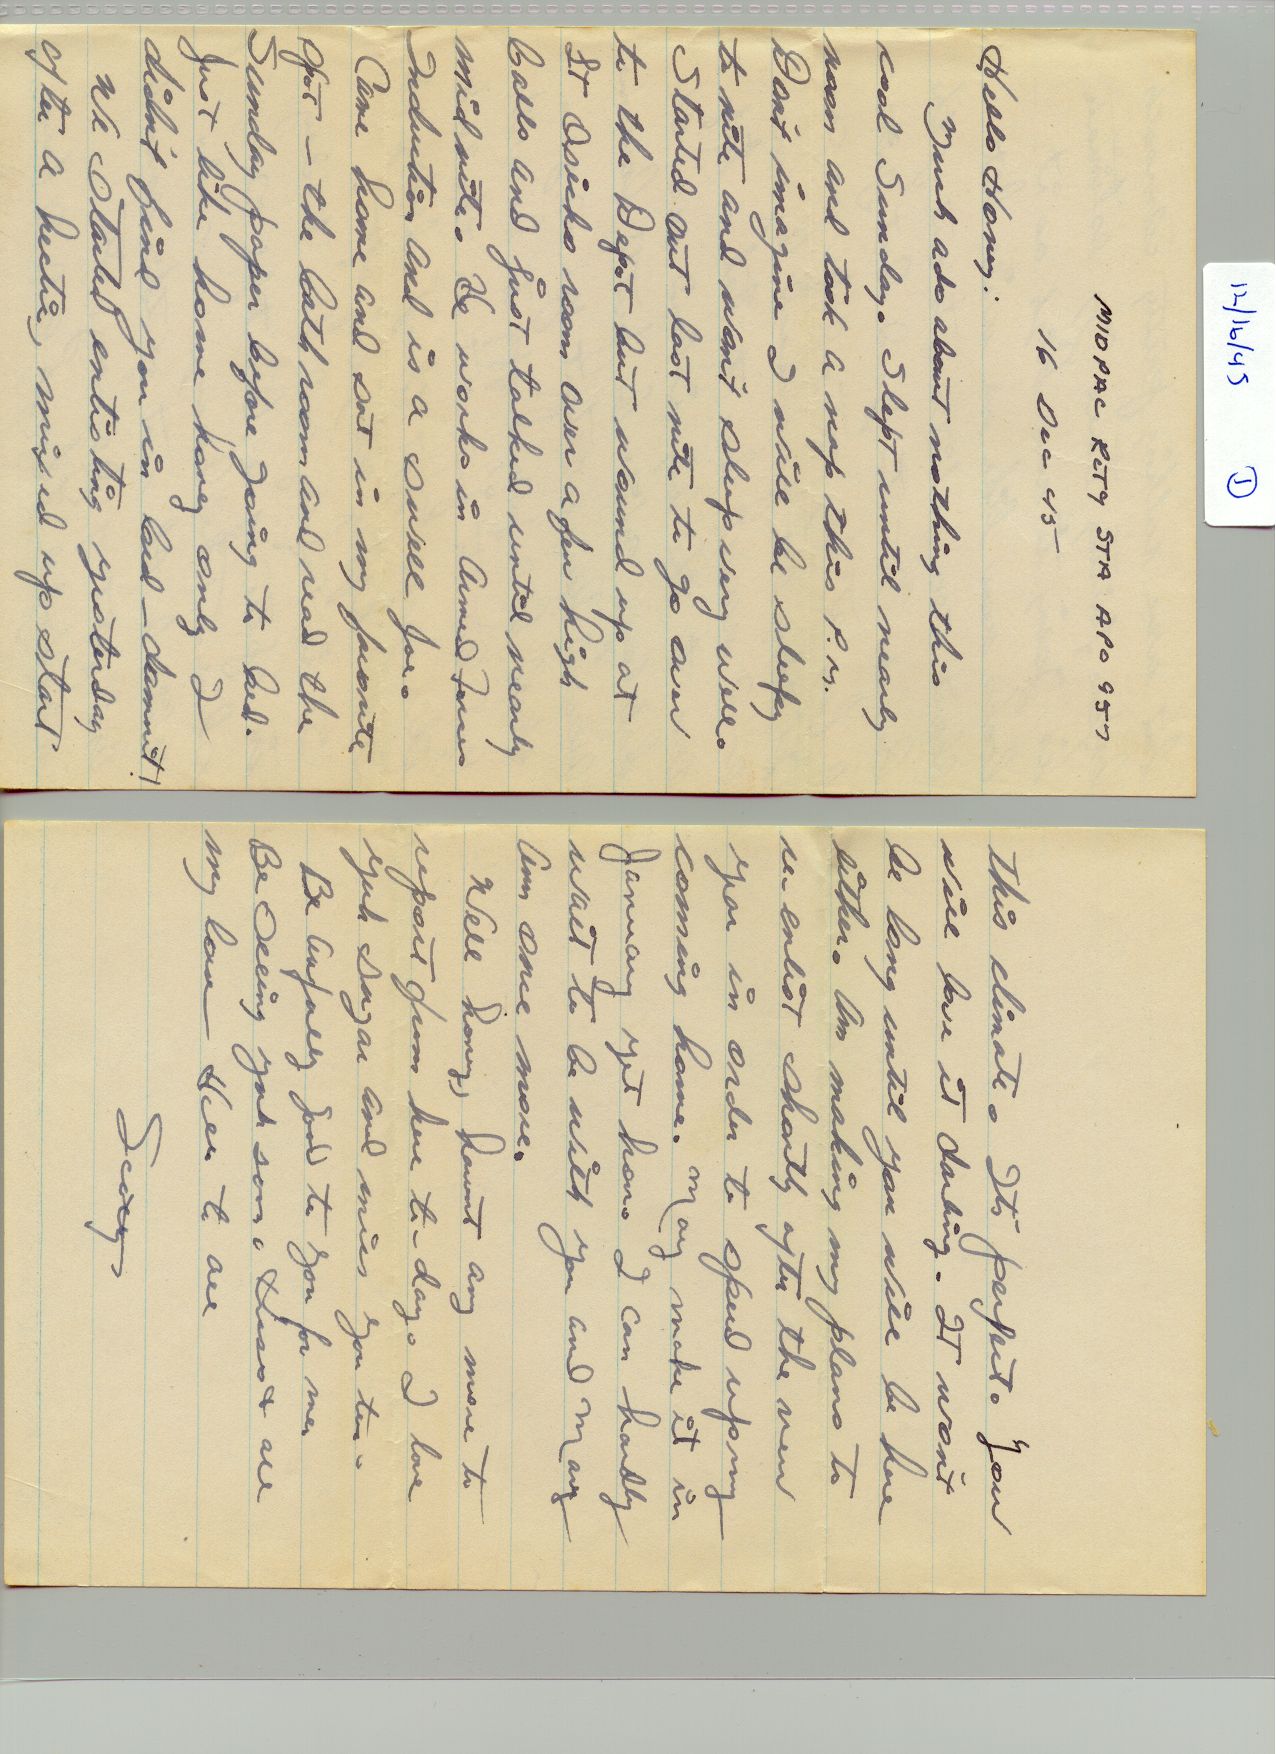 12/16/45 1
MIDPAC RCTG STA APO 957
16 Dec 45
Hello Honey:
Much ado about nothing this
cool Sunday. Slept until nearly
noon and took a nap this P.M.
Don't imagine I will be sleepy
to nite and won't sleep very well.
Started out last nite to go over
to the Depot but wound up at
Lt room over a few high
balls and just talked until nearly
midnite. He works in Armed Forces
Induction and is a swell Joe.
Came home and sat in my favorite
spot - the bath room and read the
Sunday paper before going to bed.
Just like home honey only I
didn't find you in bed - dammit!
We started enlisting yesterday
after a hectic, mixed up start
this climate. Its perfect. You
will love it darling. It won't
be long until you will be here
either. Am making my plans to
re-enlist shortly after the new
year in order to speed up my
coming home. May make it in
January yet hon. I can hardly
wait to be with you and Mary
Ann once more.
Well honey, havent any more to
report from here to-day. I love
yuh sugar and miss you too.
Be awfully good to you for me.
Be seeing yuh soon. Kisses & all
my love Here to all